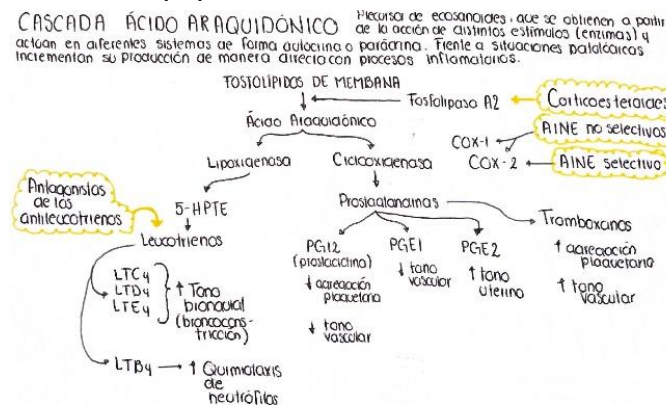 CASCADA ÁCIDO ARAQUIDÓNICO Precursor de ecosanoides, que se obtienen a partir
de la acción de distintos estímulos (enzimas) y
actúan en diferentes sistemas de forma autocrina o parácrina. Frente a situaciones patológicas
incrementan su producción de manera directa con procesos inflamatorios.
FOSFOLÍPIDOS DE MEMBRANA
Fosfolipasa A2
Corticoesteroides
Ácido Araquidónico
AINE no selectivos
COX-1
Lipoxigenasa
Ciclooxigenasa
COX-2
AINE selectivo
Antagonistas
de los
antileucotrienos
5-HPTE
Prostaglandinas
Leucotrienos
Tromboxanos
↑ agregación
plaquetaria
↑ tono
vascular
PGI2
(prostaciclina)
↓ agregación
plaquetaria
↓ tono
vascular
PGE1
↓ tono
vascular
PGE2
↑ tono
uterino
LTC4
LTD4
LTE4
↑ Tono
bronquial
(broncocons-
tricción)
LTB4 → ↑ Quimiotaxis
de
neutrófilos